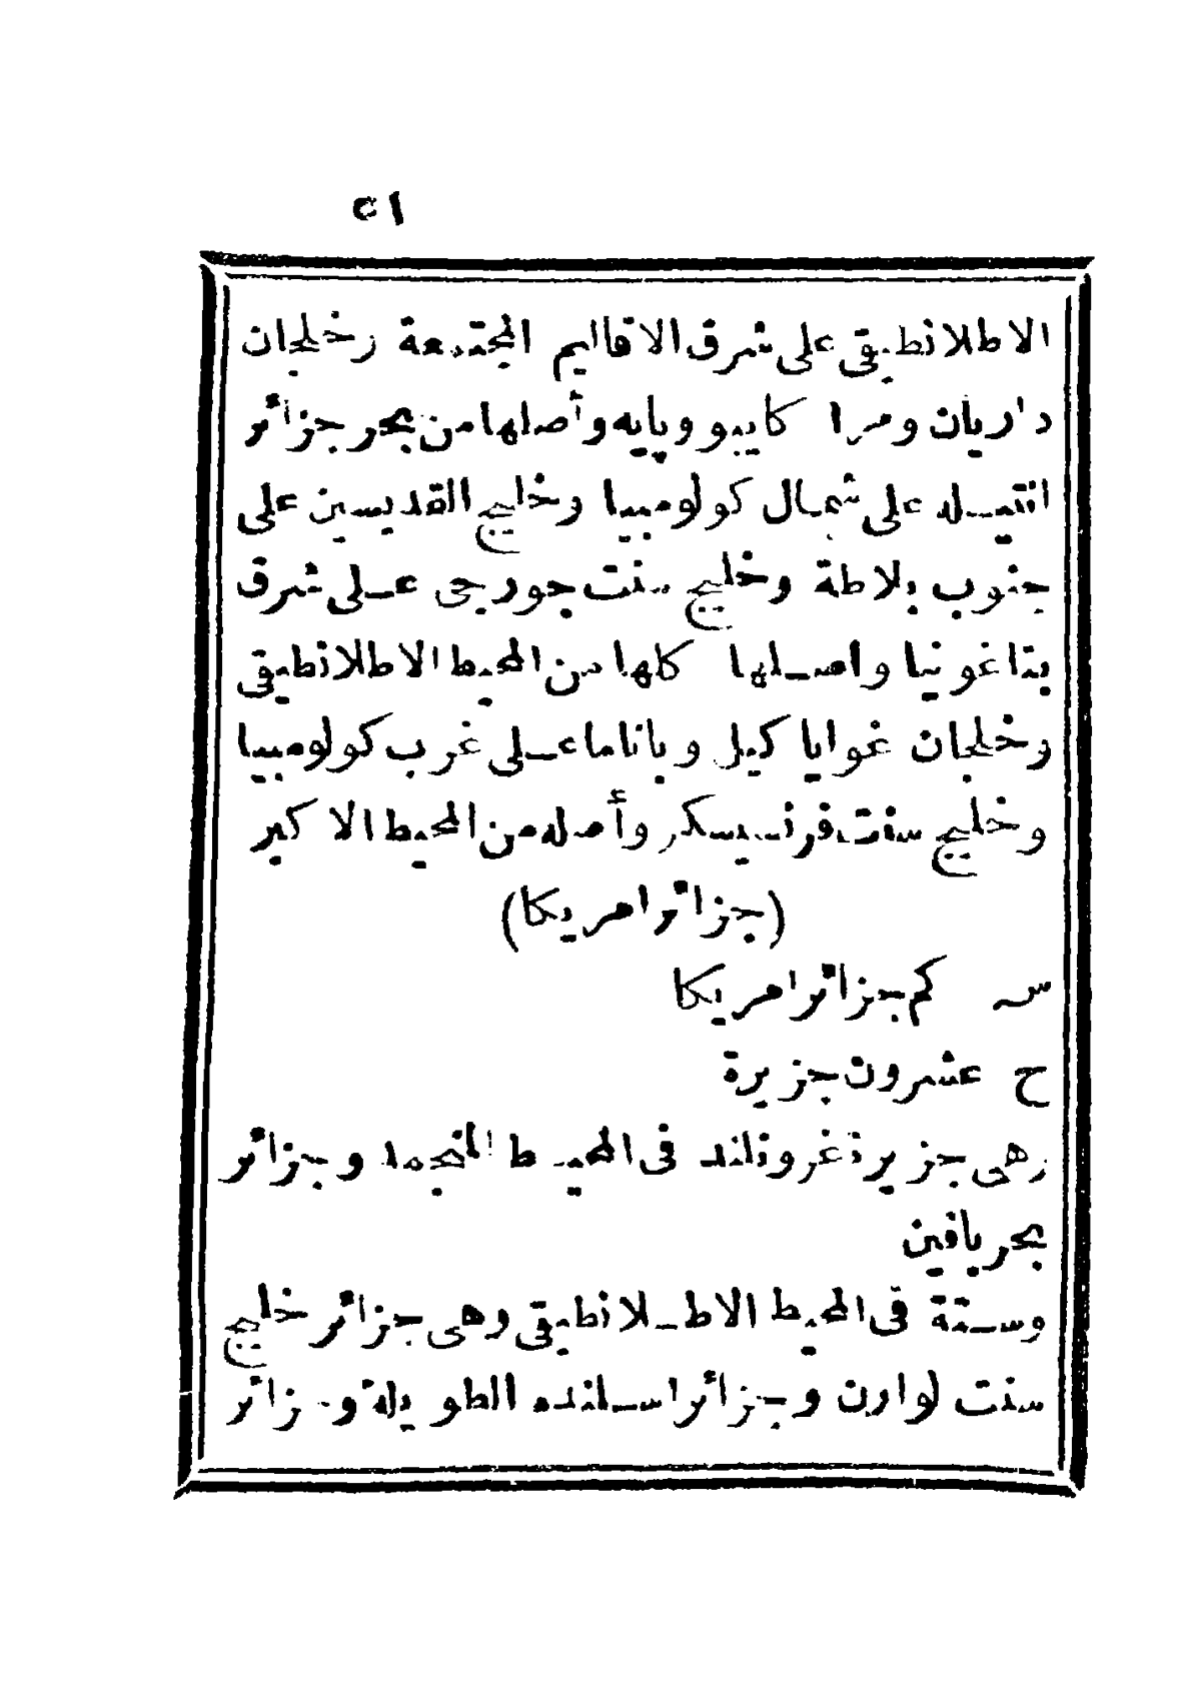 ٥١
الاطلانطيقى على شرق الاقاليم المجتمعة وخلجان
داريان ومرا كايبو وپايه وأصلها من بحر جزائر
انتيله على شمال كولومبيا وخليج القديسين على
جنوب بلاطة وخليج سنت جورجى على شرق
بتاغونيا واصلها كلها من المحيط الاطلانطيقى
وخلجان غوايا كيل وباناما على غرب كولومبيا
وخليج سنت فرنسيسكر وأصله من المحيط الاكبر
(جزائر امريكا)
س كم جزائر امريكا
ج عشرون جزيرة
وهى جزيرة غرونلند فى المحيط المنجمد وجزائر
بحر بافين
وستة فى المحيط الاطلانطيقى وهى جزائر خليج
سنت لوارن وجزائر اسلنده الطويلة وجزائر